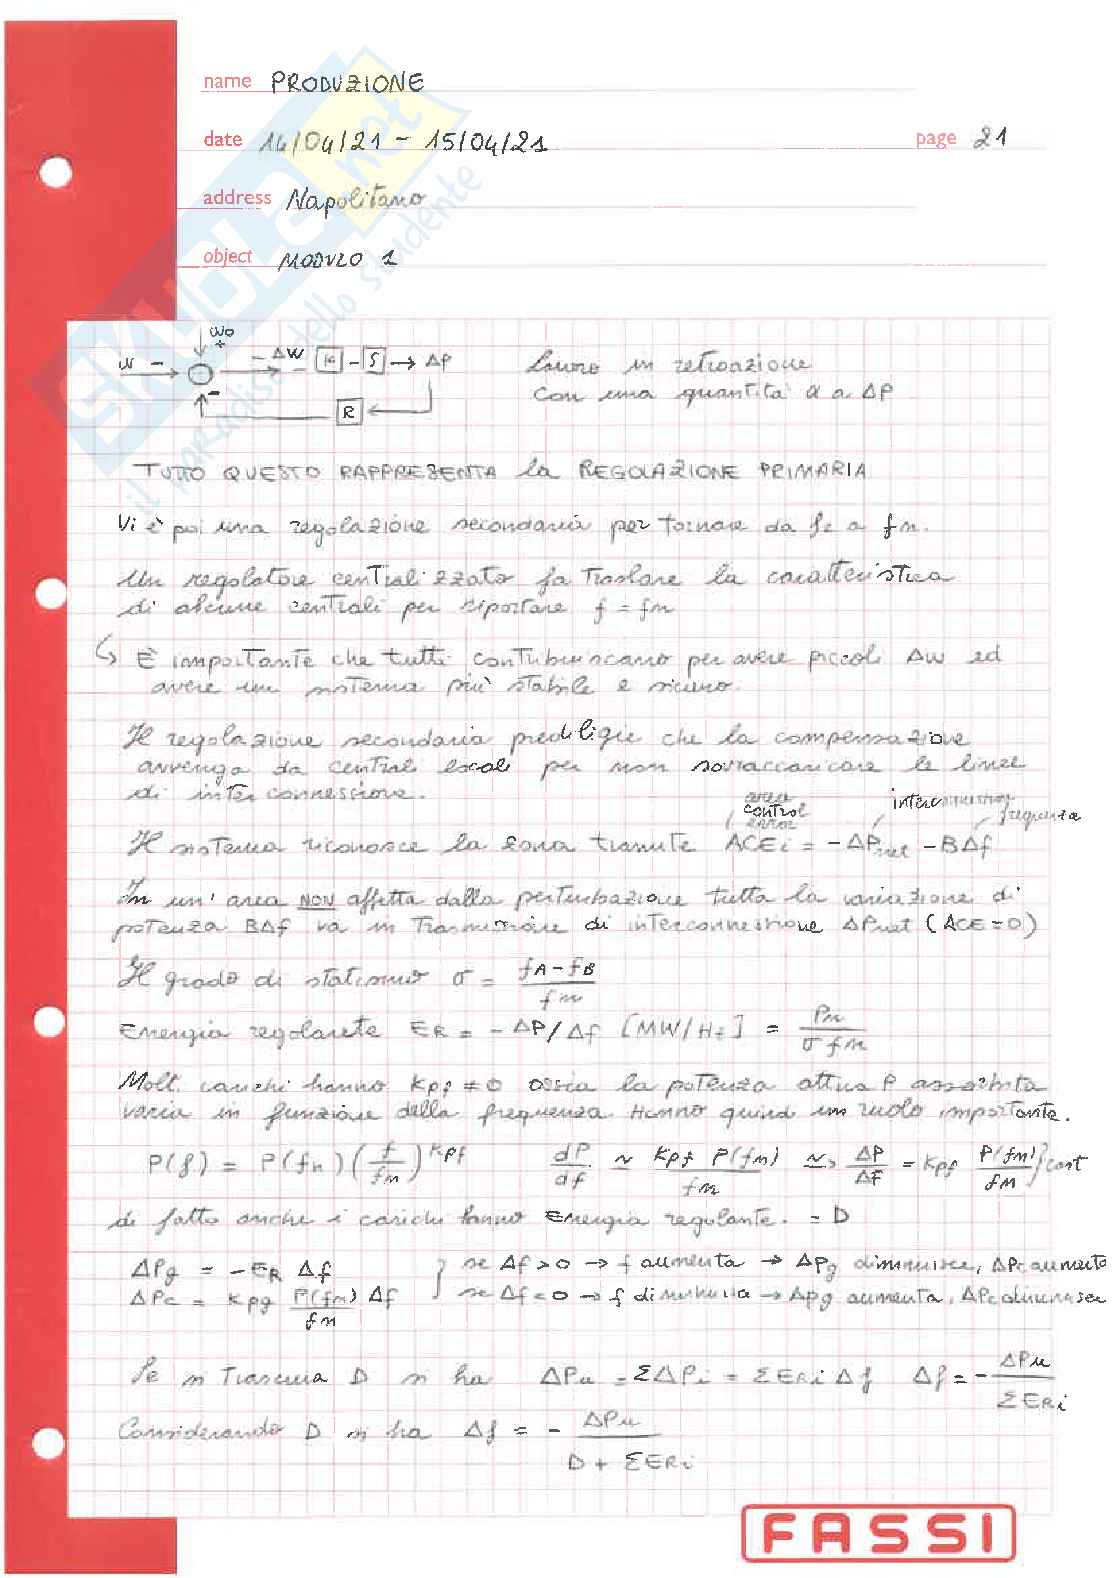 name PRODUZIONE
date 14/04/21 - 15/04/21 page 21
address Napolitano
object MODULO 1
SKUOLA.net
il paradiso dello studente
W0
+
W - -ΔW K - S → ΔP
-
R
Lavoro in retroazione
con una quantità α a ΔP
TUTTO QUESTO RAPPRESENTA la REGOLAZIONE PRIMARIA
Vi è poi una regolazione secondaria per tornare da fe a fn.
Un regolatore centralizzato fa traslare la caratteristica
di alcune centrali per riportare f = fn
↳ È importante che tutti contribuiscano per avere piccoli ΔW ed
avere un sistema più stabile e sicuro.
Il regolazione secondaria prediligie che la compensazione
avvenga da centrali locali per non sovraccaricare le linee
di interconnessione.
area control error interconnection frequenza
Il sistema riconosce la zona tramite ACEi = -ΔPnet - BΔf
In un'area NON affetta dalla perturbazione tutta la variazione di
potenza BΔf va in trasmissione di interconnessione ΔPnet (ACE=0)
Il grado di statismo σ = (fA - fB)/fn
Energia regolante ER = -ΔP/Δf [MW/Hz] = Pn/(σ fn)
Molti carichi hanno Kpf ≠ 0 ossia la potenza attiva P assorbita
varia in funzione della frequenza Hanno quindi un ruolo importante.
P(f) = P(fn) (f/fn)^Kpf dP/df ≃ Kpf P(fn)/fn ≃> ΔP/ΔF = Kpf P(fn)/fn } cost
di fatto anche i carichi hanno Energia regolante. = D
ΔPg = -ER Δf } se Δf > 0 → f aumenta → ΔPg diminuisce, ΔPc aumenta
ΔPc = Kpg P(fn)/fn Δf } se Δf < 0 → f diminuisce → ΔPg aumenta, ΔPc diminuisce
Se si trascura D si ha ΔPu = ΣΔPi = ΣERi Δf Δf = - ΔPu/ΣERi
Considerando D si ha Δf = - ΔPu/(D + ΣERi)
FASSI